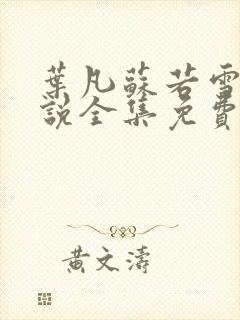 葉凡蘇若雪
說全集免費
黃文濤